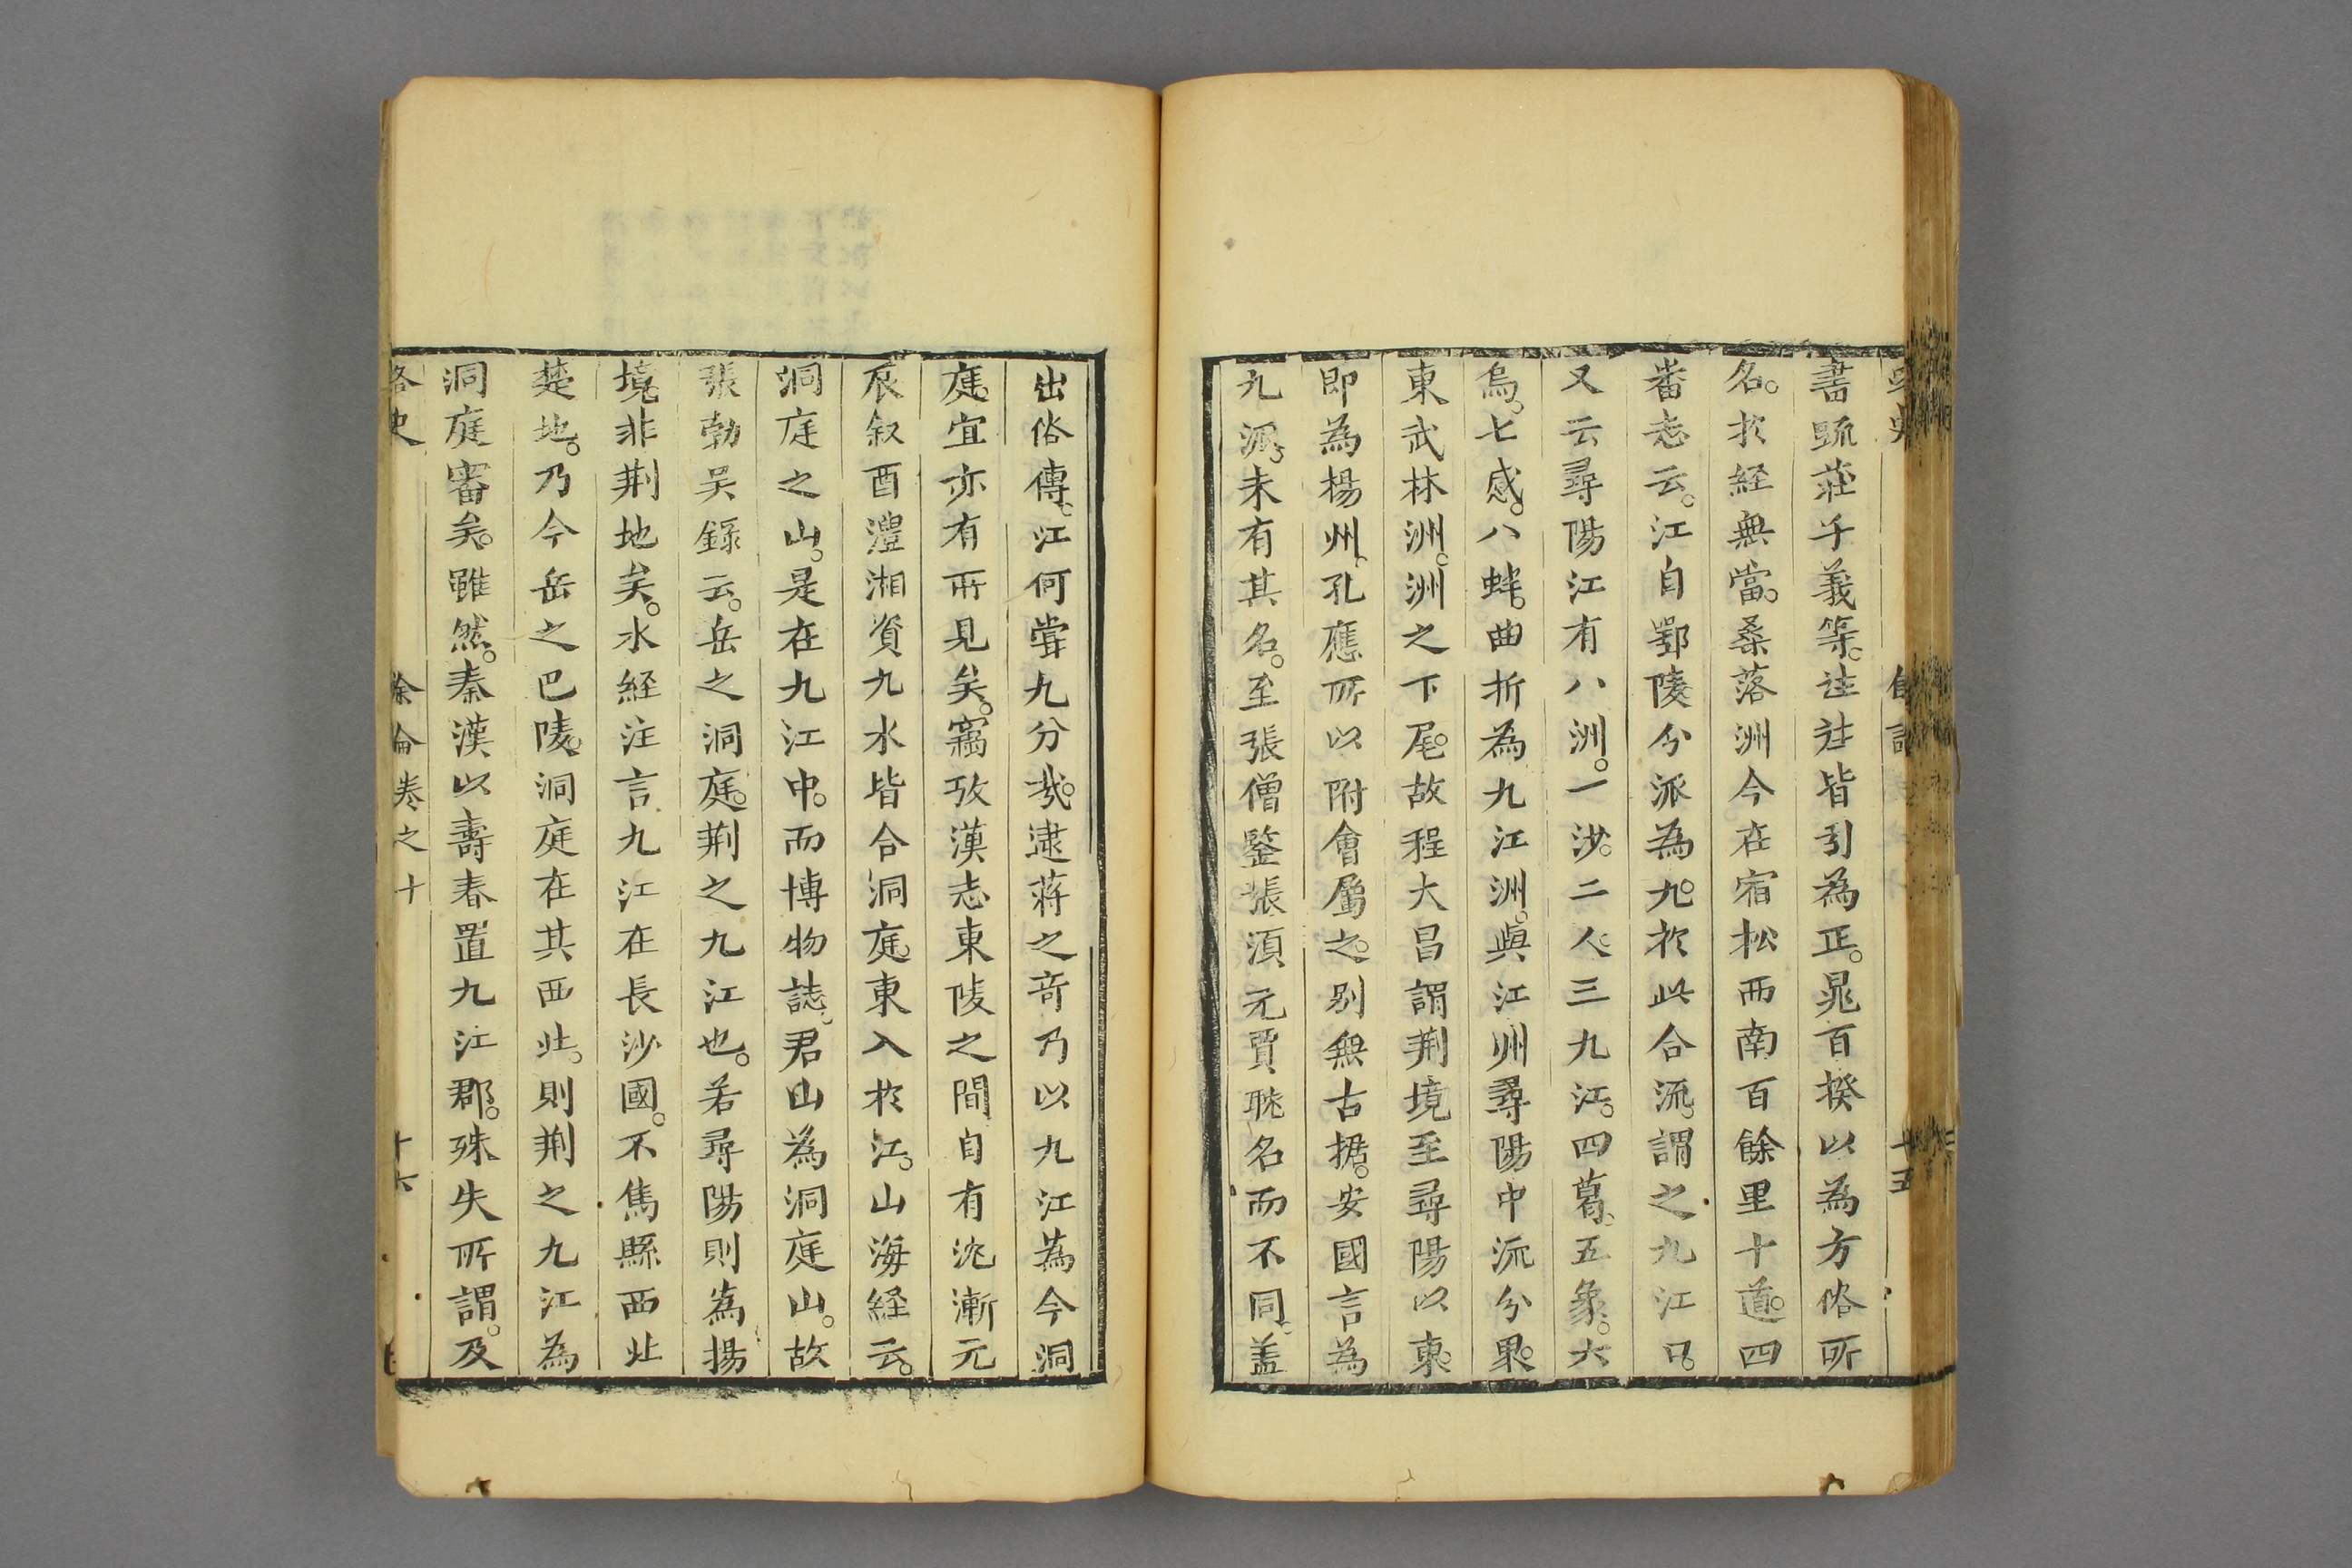 書疏莊子義等。往往皆引為正。晁百揆以為方俗所
名。於経無當。桑落洲今在宿松西南百餘里十道。四
蕃志云。江自鄂陵分派為九。於此合流。謂之九江口。
又云尋陽江有八洲。一沙。二人。三九江。四葛。五象。六
烏。七感。八蚌。曲折為九江洲。與江州尋陽中流分果。
東武林洲。洲之下尾。故程大昌謂荆境至尋陽以東。
即為楊州。孔應所以附會屬之。别無古據。安國言為
九派。未有其名。至張僧鑒張湏元賈耽名而不同。盖
出俗傳。江何甞九分㢤。逮蒋之竒乃以九江為今洞
庭。宜亦有所見矣。竊攷漢志東陵之間自有沇漸元
辰叙酉澧湘資九水皆合洞庭。東入於江。山海経云。
洞庭之山。是在九江中。而博物誌。君山為洞庭山。故
張勃吴録云。岳之洞庭。荆之九江也。若尋陽則為揚
境。非荆地矣。水経注言九江在長沙國。不雋縣西北
楚地。乃今岳之巴陵。洞庭在其西北。則荆之九江為
洞庭審矣。雖然。秦漢以壽春置九江郡。殊失所謂。及
路史 餘論卷之十 十六